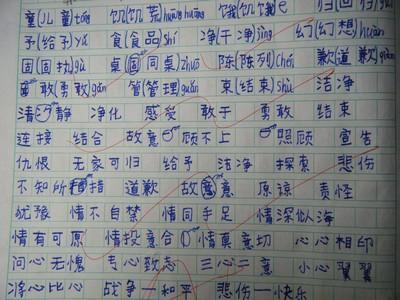 童(儿童)tóng 饥(饥荒)huāng 饿(饥饿)è 归(归回)
予(给予)yǔ 食(食品)shí 净(干净)jìng 幻(幻想)huàn
固(固执)gù 桌(同桌)zhuō 陈(陈列)chén 歉(道歉)qiàn
勇敢)gǎn 管(管理)guǎn 束(结束)shù 洁净
清静 净化 感受 敢于 勇敢 结束
连接 结合 故意 顾不上 照顾 宣告
仇恨 无家可归 给予 洁净 探索 悲伤
不知所措 道歉 故意 原谅 责怪
犹豫 情不自禁 情同手足 情深似海
情有可原 情投意合 情真意切 心心相印
问心无愧 专心致志 三心二意 小心翼翼
将心比心 战争—和平 悲伤—快乐